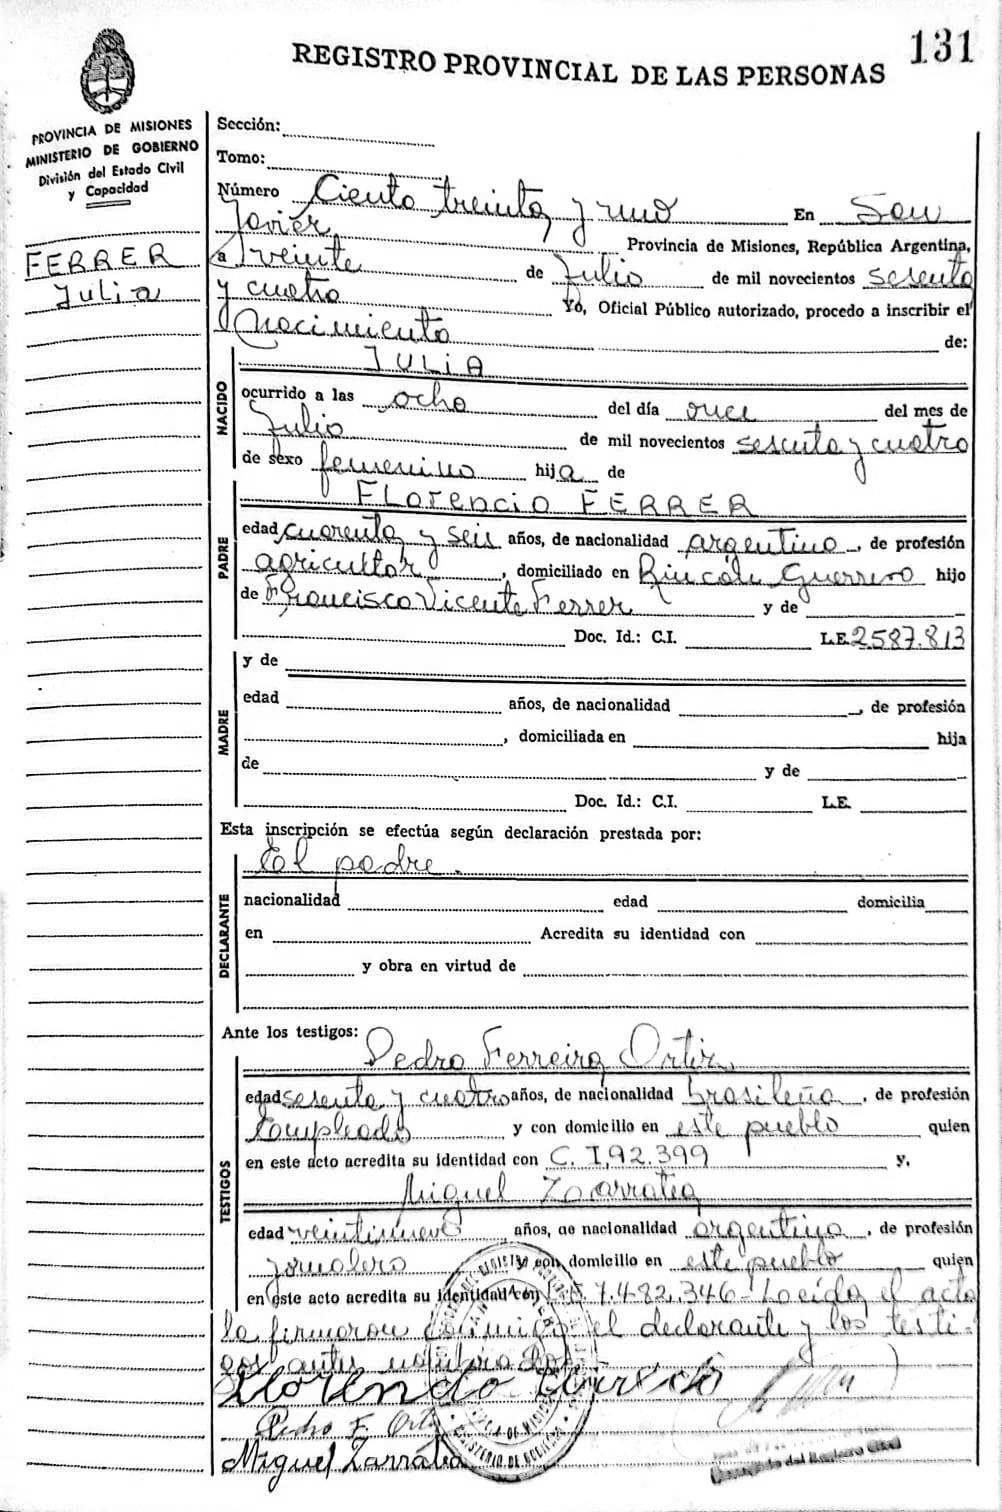 131
REGISTRO PROVINCIAL DE LAS PERSONAS
PROVINCIA DE MISIONES
MINISTERIO DE GOBIERNO
División del Estado Civil
y Capacidad
FERRER
Julia
Sección:
Tomo:
Número Ciento treinta y uno En San
Javier Provincia de Misiones, República Argentina,
a veinte de Julio de mil novecientos sesenta
y cuatro Yo, Oficial Público autorizado, procedo a inscribir el
Nacimiento de:
NACIDO
JULIA
ocurrido a las ocho del día once del mes de
Julio de mil novecientos sesenta y cuatro
de sexo femenino hija de
PADRE
Florencio FERRER
edad cuarenta y seis años, de nacionalidad argentino, de profesión
agricultor, domiciliado en Rincón Guerrero hijo
de Francisco Vicente Ferrer y de
Doc. Id.: C.I. L.E. 2.587.813
MADRE
y de
edad años, de nacionalidad , de profesión
, domiciliada en hija
de y de
Doc. Id.: C.I. L.E.
Esta inscripción se efectúa según declaración prestada por:
DECLARANTE
El padre.
nacionalidad edad domicilia
en Acredita su identidad con
y obra en virtud de
Ante los testigos:
TESTIGOS
Pedro Ferreira Ortiz
edad sesenta y cuatro años, de nacionalidad brasileña, de profesión
Empleado y con domicilio en este pueblo quien
en este acto acredita su identidad con C. I. 92.399 y.
Miguel Zarratea
edad veintinueve años, de nacionalidad argentino, de profesión
Jornalero y con domicilio en este pueblo quien
en este acto acredita su identidad con 7.482.346 - Leída el acta
la firmaron conmigo el declarante y los testi-
gos antes nombrados
Florencio
Pedro F. Ortiz
Miguel Zarratea
Registro Civil